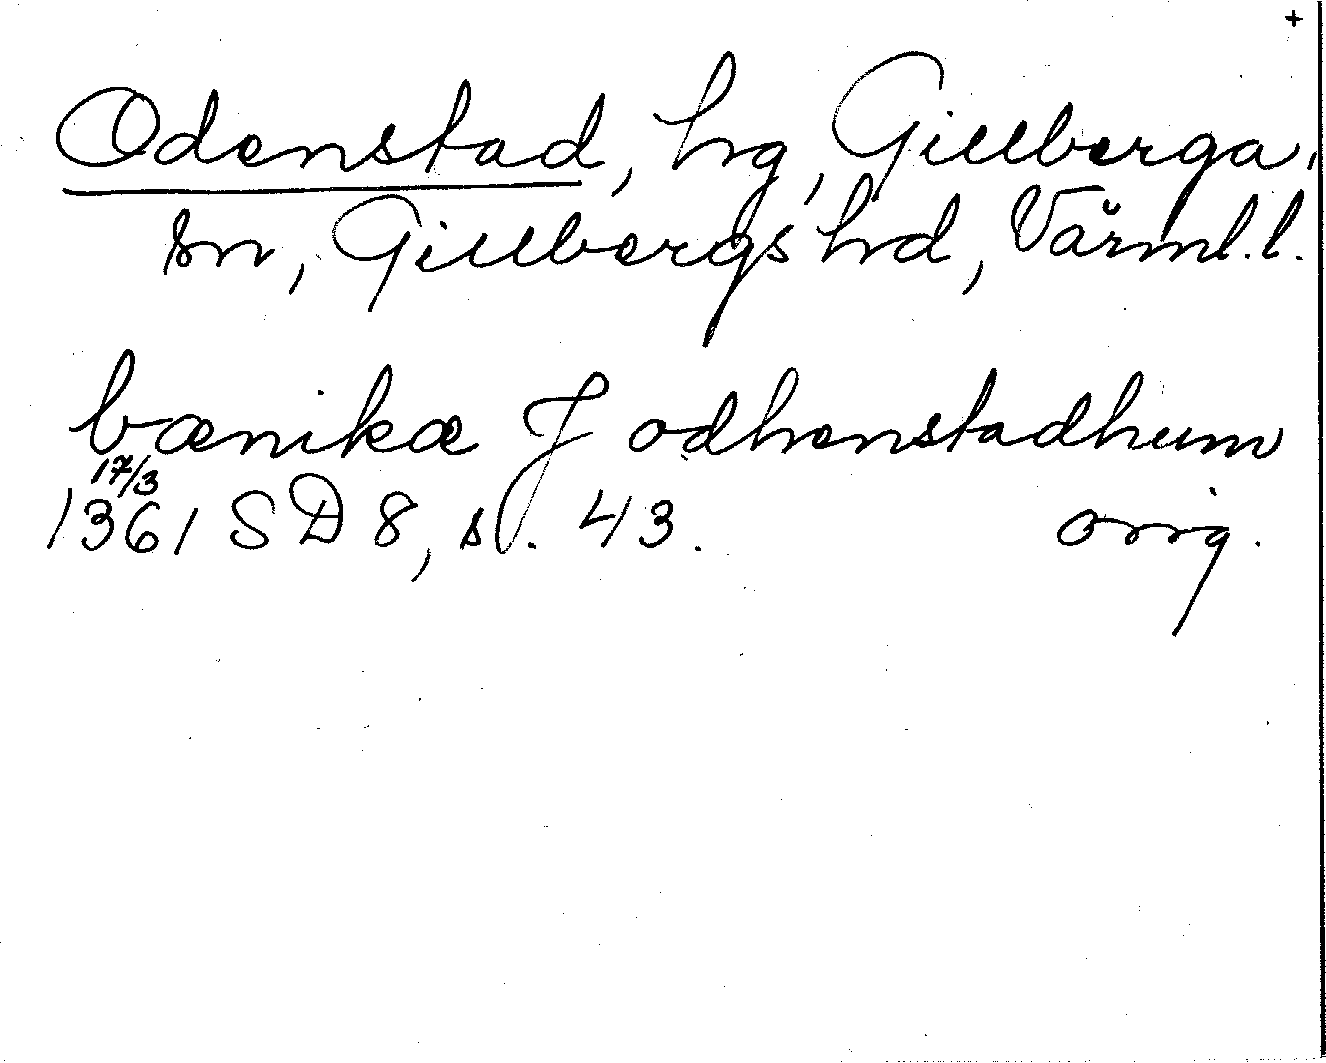 +
Odenstad, hg, Gillberga
sn, Gillbergs hd, Värml.l.
bænikæ J odhenstadhum
17/3
1361 SD 8, s. 43. orig.